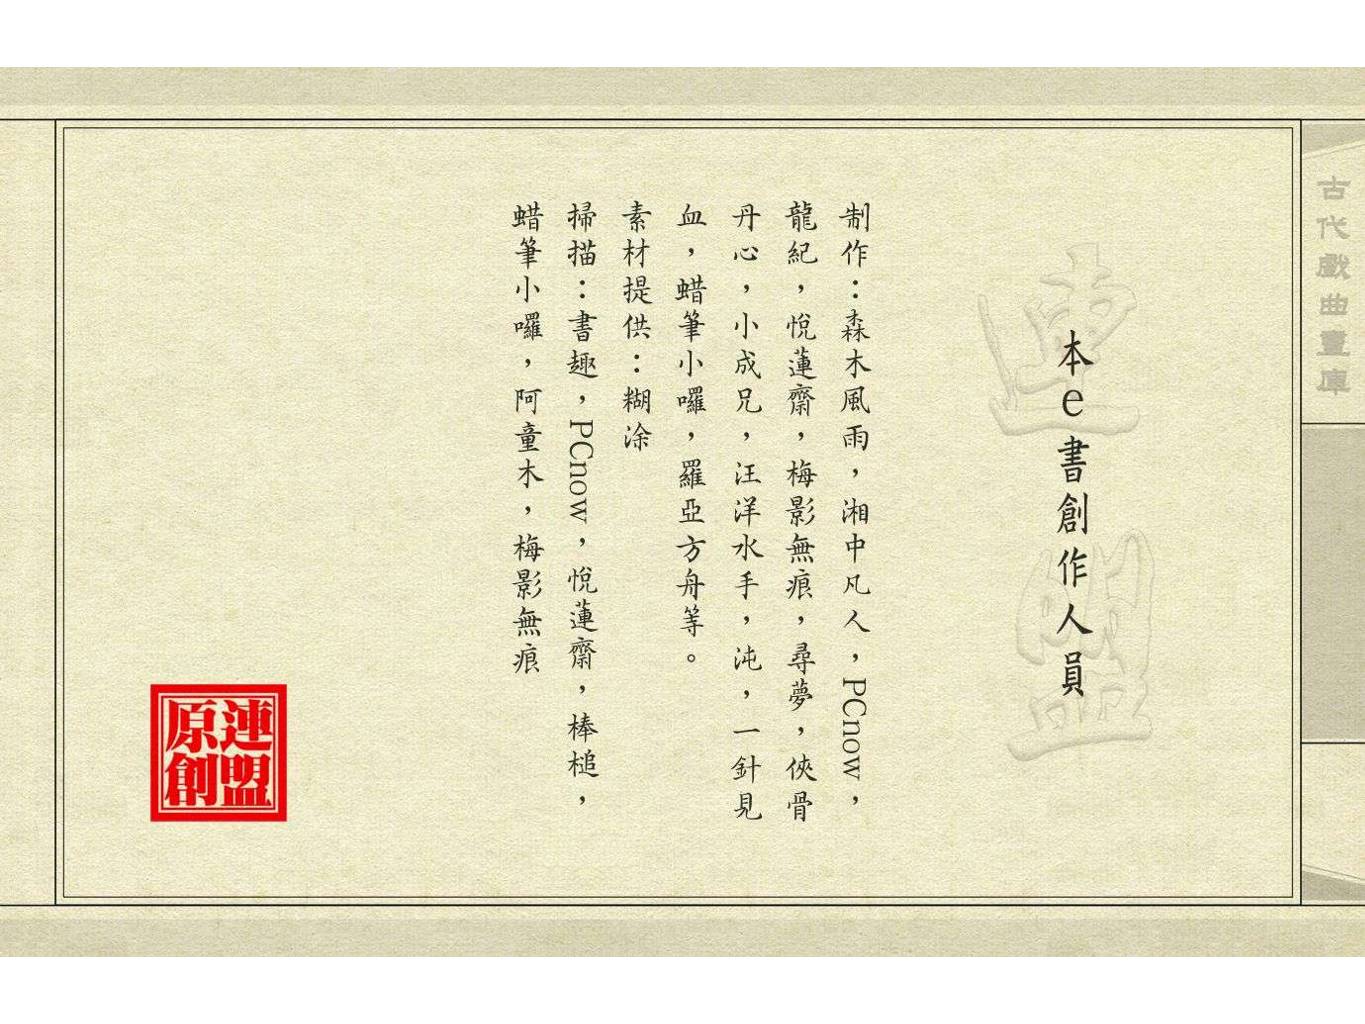 古代戲曲畫庫
連盟
本e書創作人員
制作：森木風雨，湘中凡人，PCnow，
龍紀，悅蓮齋，梅影無痕，尋夢，俠骨
丹心，小成兄，汪洋水手，沌，一針見
血，蜡筆小囉，羅亞方舟等。
素材提供：糊涂
掃描：書趣，PCnow，悅蓮齋，棒槌，
蜡筆小囉，阿童木，梅影無痕
連盟
原創